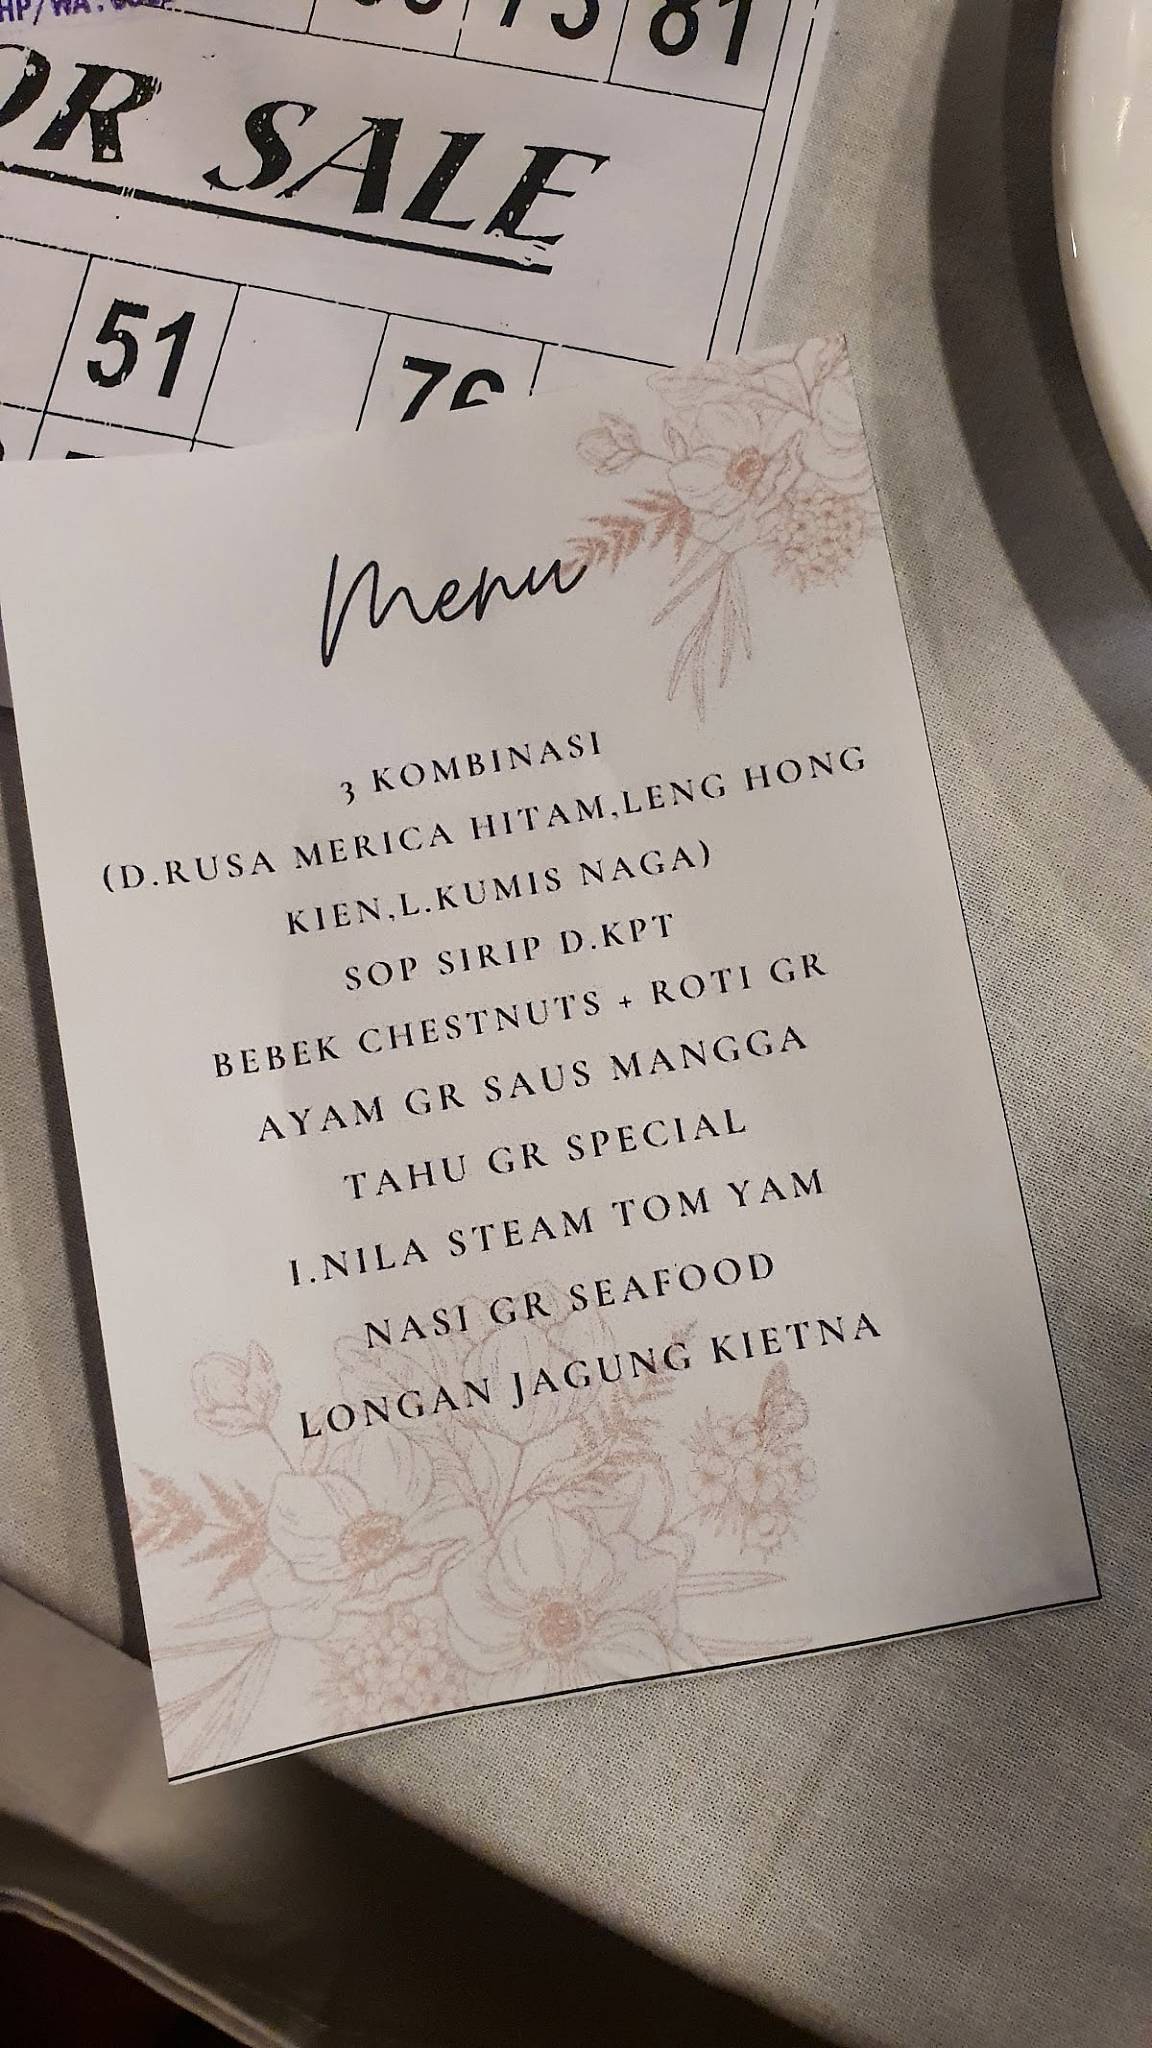 HP/WA:
81
OR SALE
51
Menu
3 KOMBINASI
(D.RUSA MERICA HITAM,LENG HONG
KIEN,L.KUMIS NAGA)
SOP SIRIP D.KPT
BEBEK CHESTNUTS + ROTI GR
AYAM GR SAUS MANGGA
TAHU GR SPECIAL
I.NILA STEAM TOM YAM
NASI GR SEAFOOD
LONGAN JAGUNG KIETNA